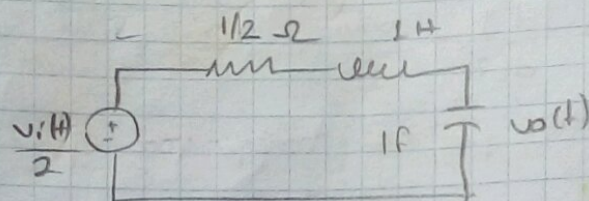 1/2 Ω
1 H
vi(t)
2
+
-
1f
vo(t)